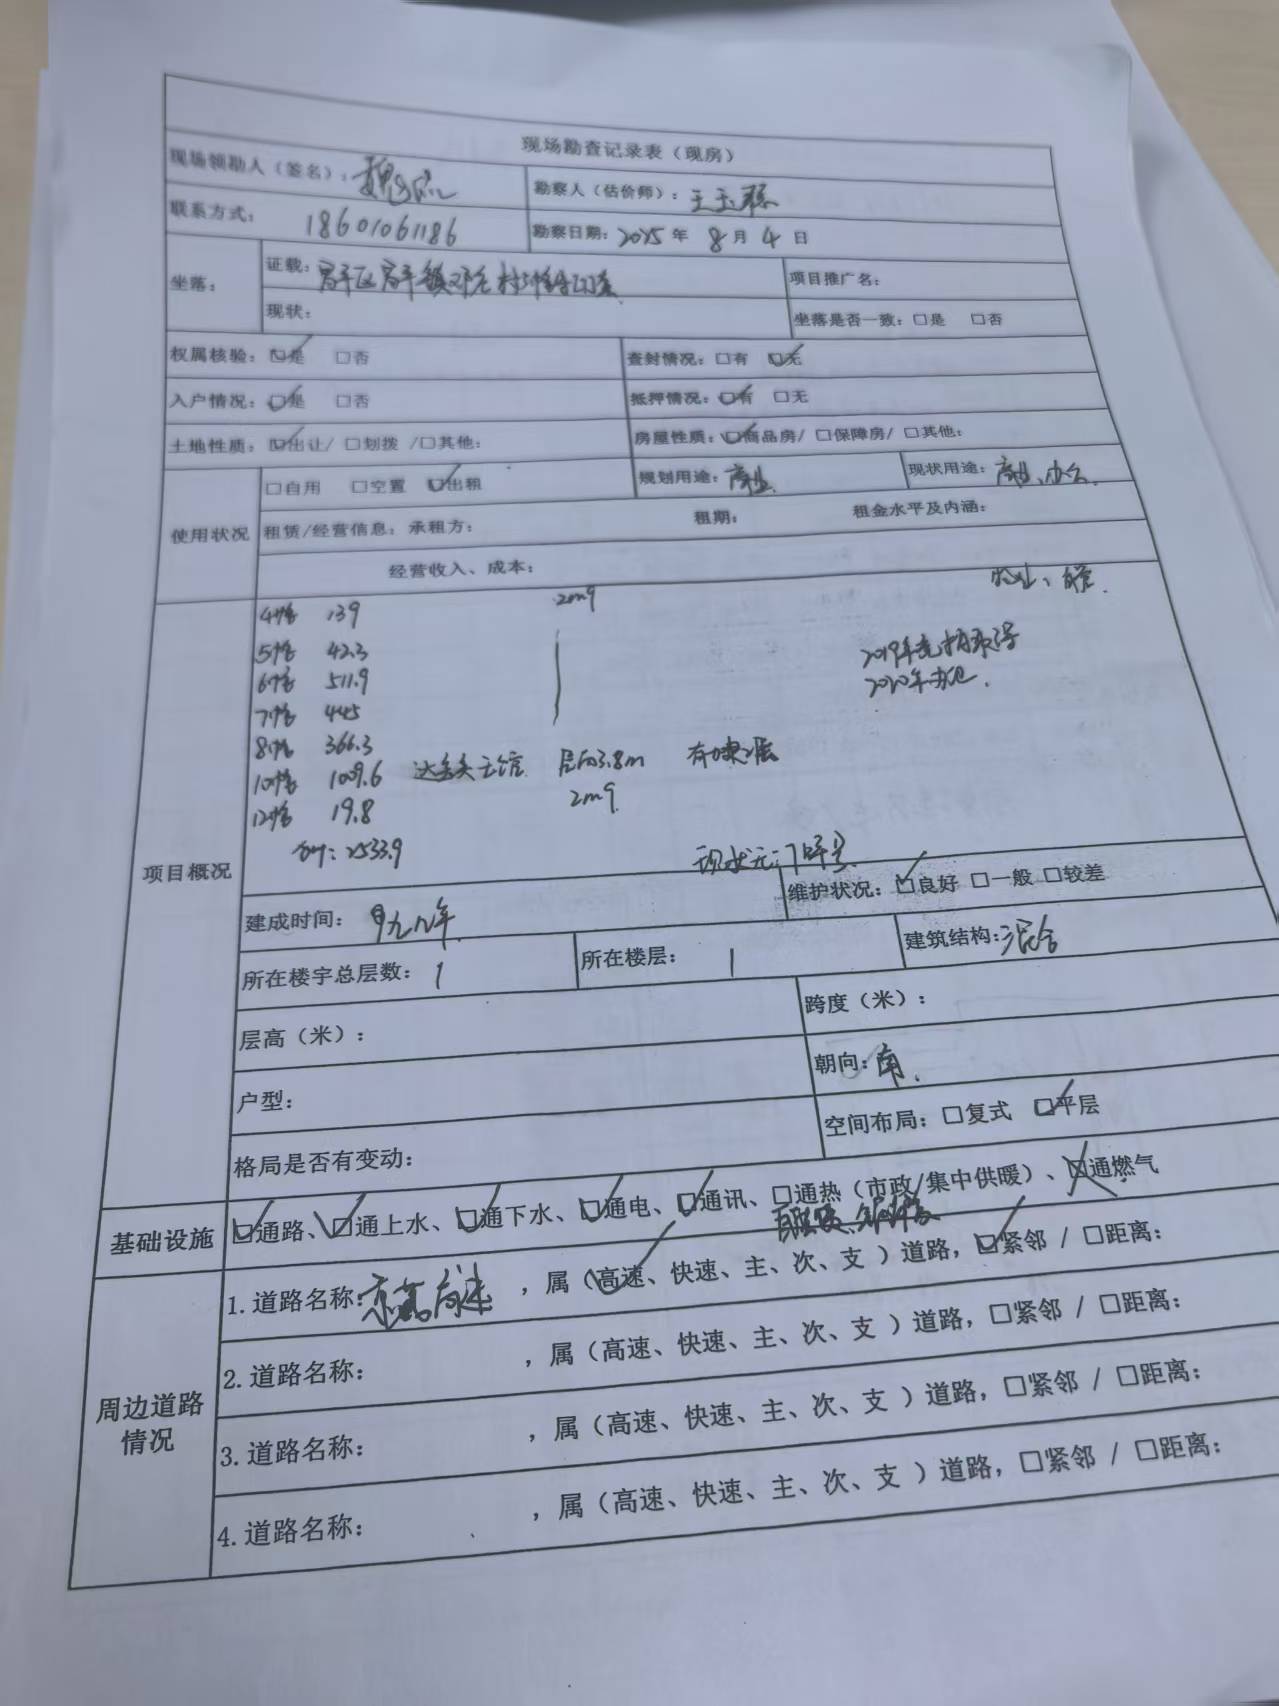 现场勘查记录表（现房）
现场领勘人（签名）： 勘察人（估价师）：王玉
联系方式： 18601061186 勘察日期：2025年 8月 4日
坐落： 证载：昌平区昌平镇邓庄村 项目推广名：
现状： 坐落是否一致：□是 □否
权属核验：☑是 □否 查封情况：□有 ☑无
入户情况：☑是 □否 抵押情况：☑有 □无
土地性质：☑出让/ □划拨 /□其他： 房屋性质：☑商品房/ □保障房/ □其他：
使用状况 □自用 □空置 ☑出租 规划用途：商业 现状用途：商业、办公
租赁/经营信息：承租方： 租期： 租金水平及内涵：
经营收入、成本：
项目概况
4幢 139
5幢 42.3 2019年竞拍取得
6幢 511.9 2020年办
7幢 445
8幢 366.3
10幢 1009.6 层高3.8m 有
12幢 19.8
合计：2533.9 现状无：7幢
建成时间： 九八年 维护状况：☑良好 □一般 □较差
所在楼宇总层数：1 所在楼层：1 建筑结构：混合
层高（米）： 跨度（米）：
户型： 朝向：南
格局是否有变动： 空间布局：□复式 ☑平层
基础设施 ☑通路、☑通上水、☑通下水、☑通电、☑通讯、□通热（市政/集中供暖）、☒通燃气
周边道路情况
1.道路名称：京 高速 ，属（高速、快速、主、次、支 ）道路，☑紧邻 / □距离：
2.道路名称： ，属（高速、快速、主、次、支 ）道路，□紧邻 / □距离：
3.道路名称： ，属（高速、快速、主、次、支 ）道路，□紧邻 / □距离：
4.道路名称： ，属（高速、快速、主、次、支 ）道路，□紧邻 / □距离：